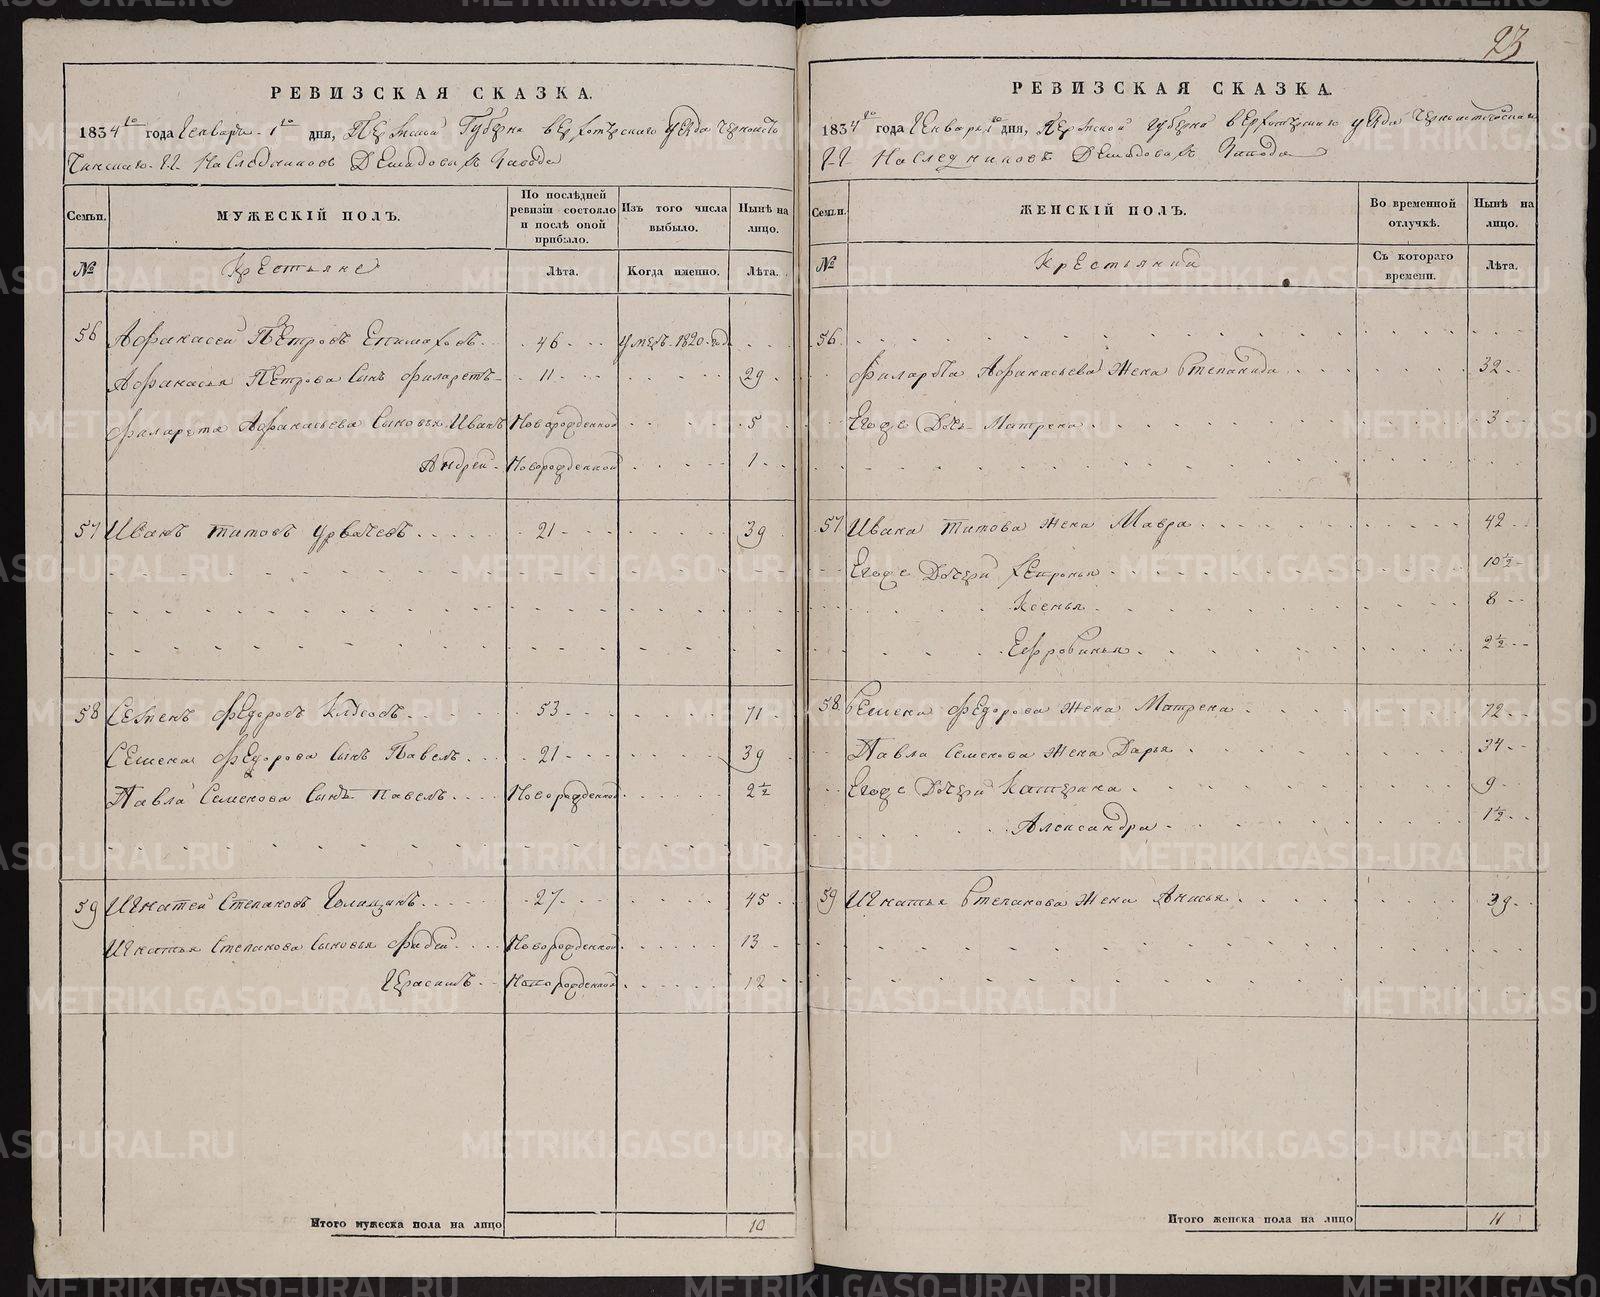 23
РЕВИЗСКАЯ СКАЗКА.
1834го года Генваря 1го дня, Пермской Губернии Верхотурскаго уезда Черноисто
чинскаго Г.Г. Наследниковъ Демидовыхъ Завода
Семьи. МУЖЕСКІЙ ПОЛЪ. По послѣдней ревизіи состояло и послѣ оной прибыло. Изъ того числа выбыло. Нынѣ на лицо.
№ Крестьяне Лѣта. Когда именно. Лѣта.
56 Афанасей Петровъ Епимаховъ 46 умеръ 1820 год
Афанасья Петрова сынъ Филаретъ 11 29
Филарета Афанасьева сыновья Иванъ Новорожденной 5
Андрей Новорожденной 1
57 Иванъ Титовъ 21 39
58 Семенъ Федоровъ 53 71
Семена Федорова сынъ Павелъ 21 39
Павла Семенова сынъ Павелъ Новорожденной 2½
59 Игнатей Степановъ Голицынъ 27 45
Игнатья Степанова сыновья Фадей Новорожденной 13
Герасимъ Новорожденной 12
Итого мужеска пола на лицо 10
РЕВИЗСКАЯ СКАЗКА.
1834го года Генваря 1го дня, Пермской Губернии Верхотурскаго уезда Черноисточинскаго
Г.Г. Наследниковъ Демидовыхъ Завода
Семьи. ЖЕНСКІЙ ПОЛЪ. Во временной отлучкѣ. Нынѣ на лицо.
№ Крестьянки Съ котораго времени. Лѣта.
56
Филарета Афанасьева жена Степанида 32
Егоже дочь Матрена 3
57 Ивана Титова жена Мавра 42
Егоже дочери Хетронья 10½
Ксенья 8
Ефросинья 2½
58 Семена Федорова жена Матрена 72
Павла Семенова жена Дарья 34
Егоже дочери Катерина 9
Александра 1½
59 Игнатья Степанова жена Анисья 39
Итого женска пола на лицо 11
METRIKI.GASO-URAL.RU